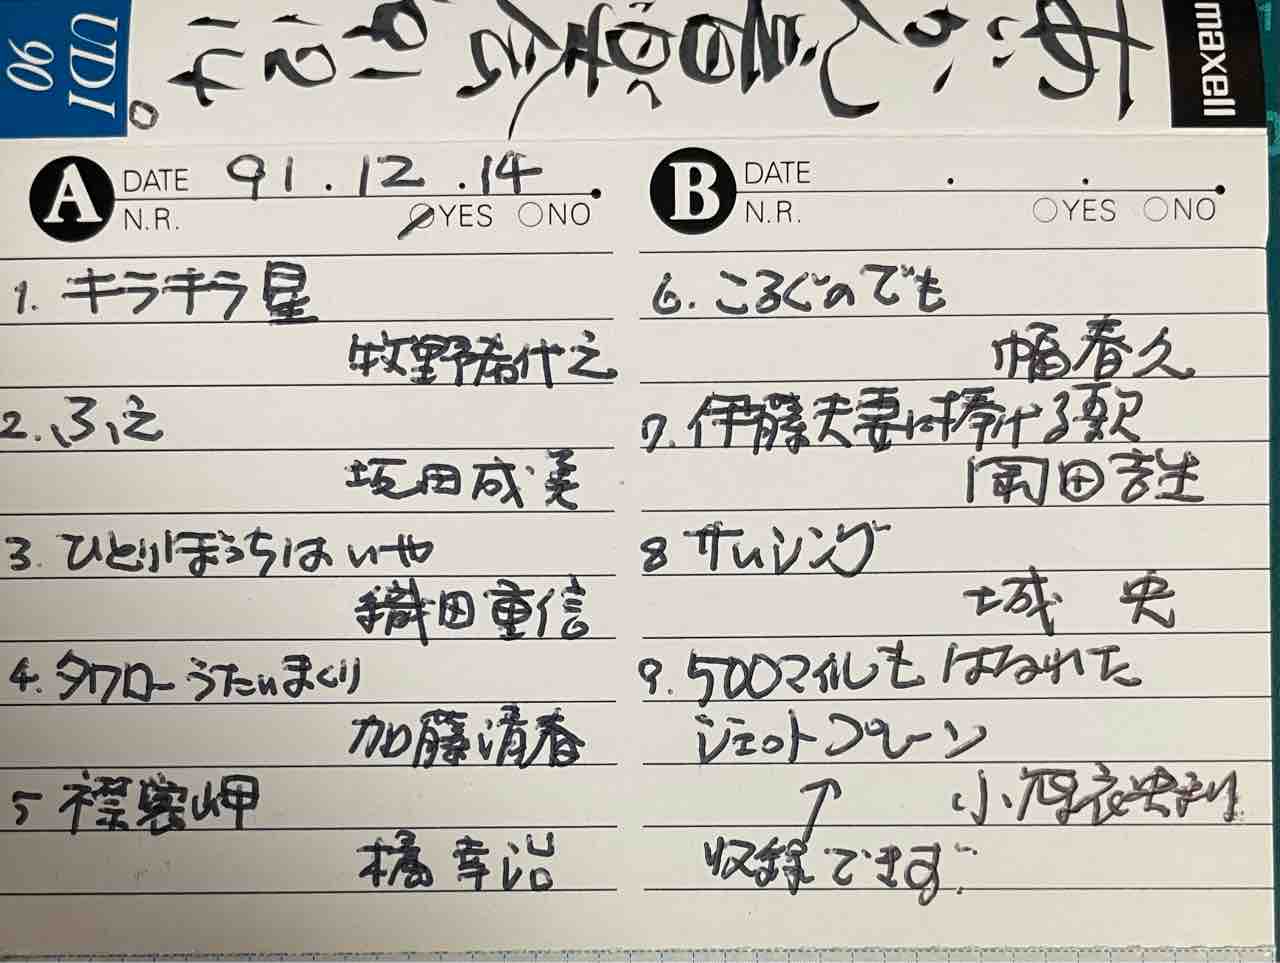 maxell
UDI
90
A
DATE 91.12.14
N.R. YES NO
1. キラキラ星
牧野希代之
2. ふえ
坂田成美
3. ひとりぼっちはいや
織田重信
4. タワローうたいまくり
加藤清春
5 襟裳岬
橘幸治
B
DATE . .
N.R. YES NO
6. ころぐのでも
幅春久
7. 伊藤夫妻に捧げる歌
岡田吉生
8 サムシング
城 央
9. 500マイルもはなれた
ジェットプレーン
↑
収録できず